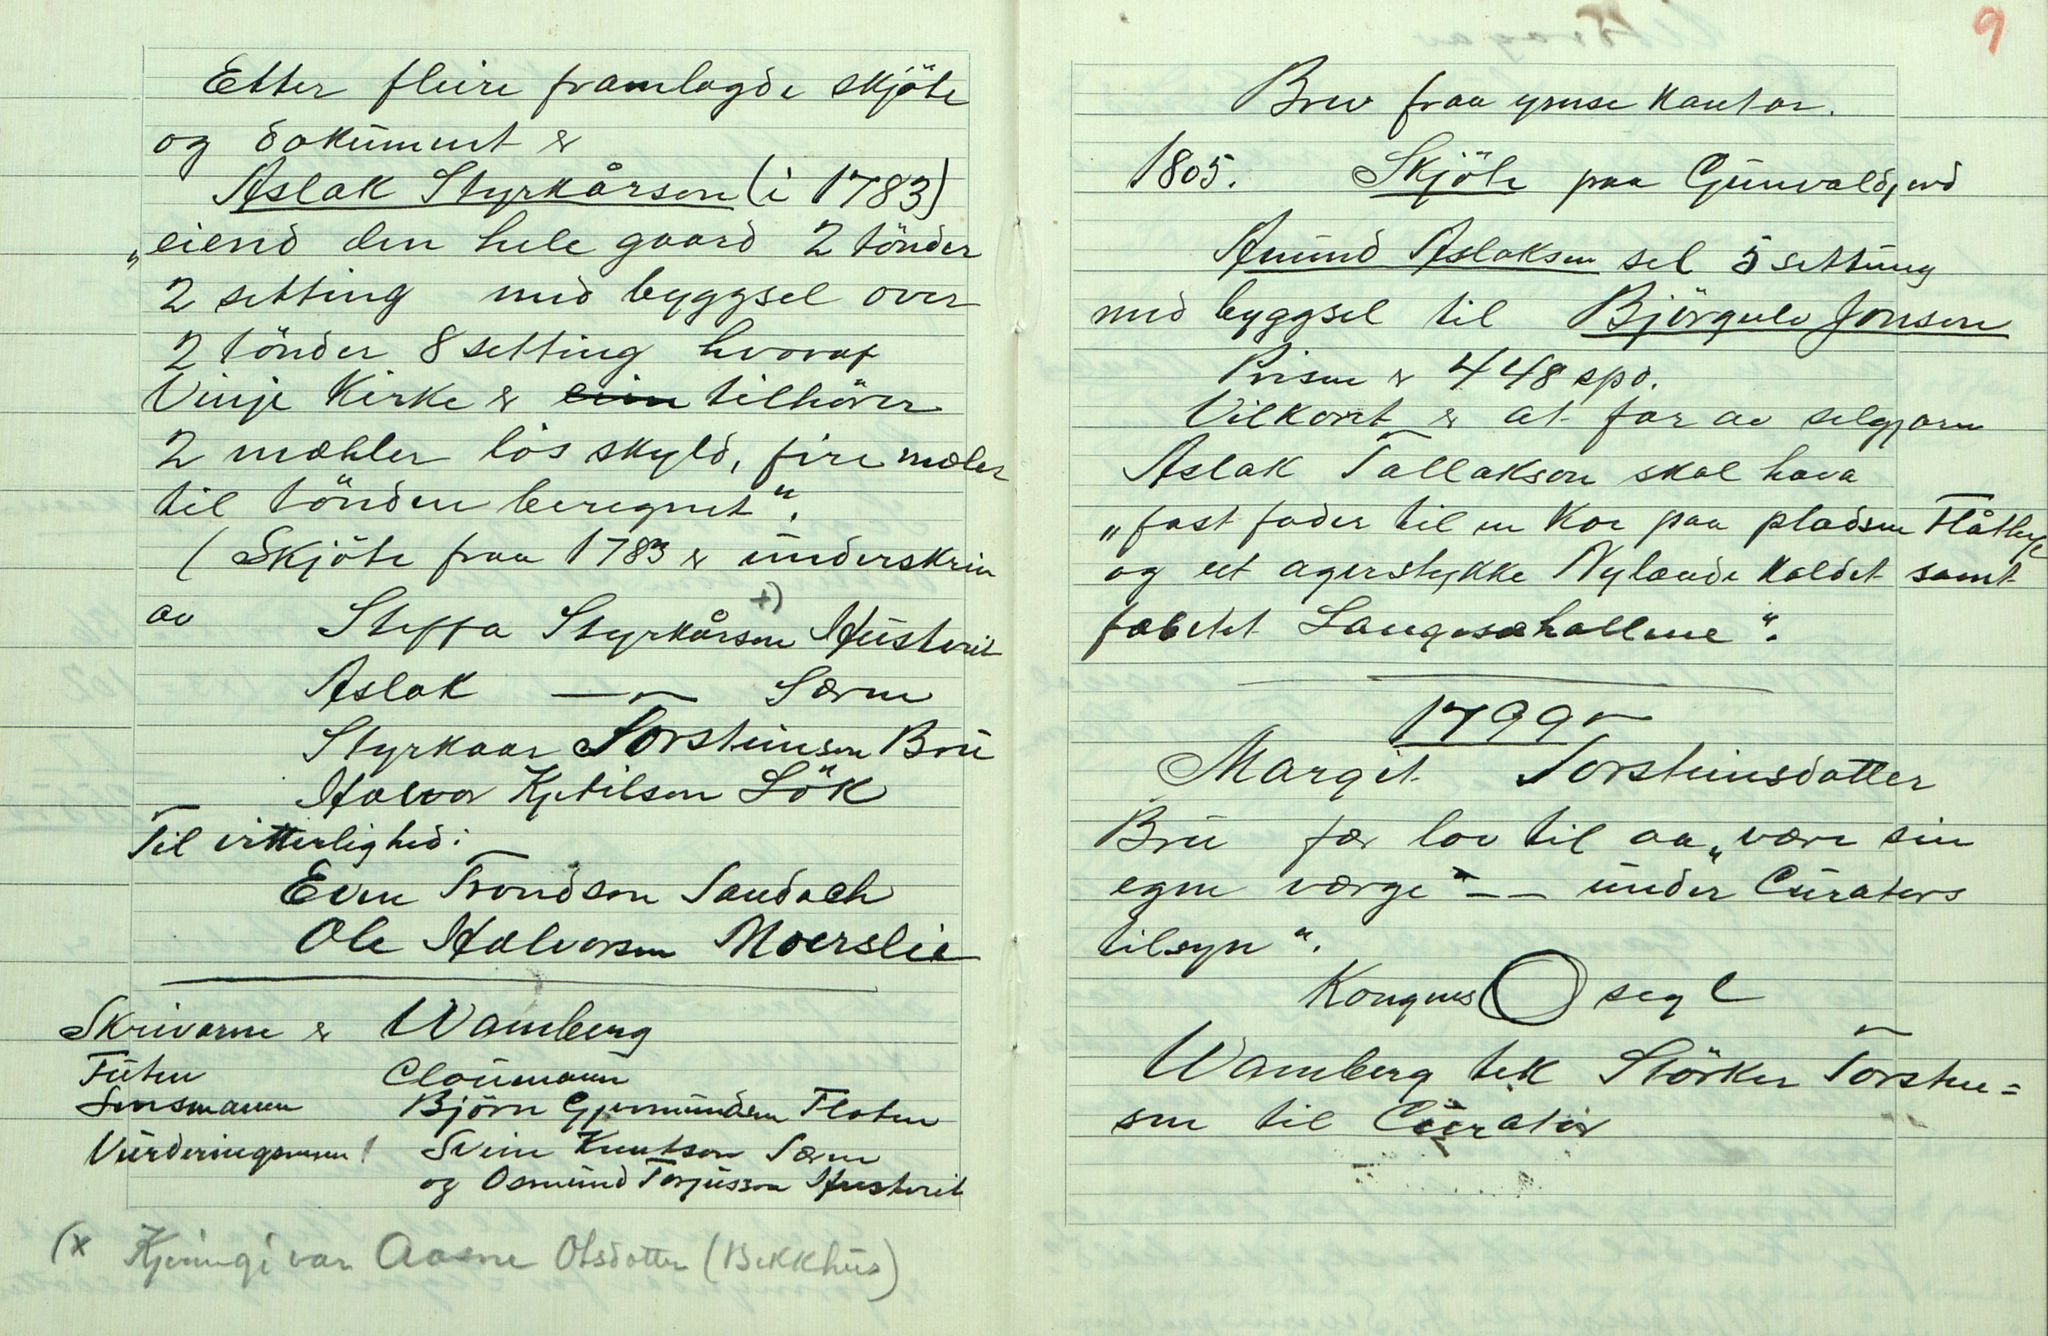 Etter fleire framlagde skjöte
og dokument er
Aslak Styrkårson (i 1783)
"eiend den hele gaard 2 tönder
2 setting med bygsel over
2 tönder 8 setting hvoraf
Vinje Kirke er eien tilhörer
2 mæhler lös skyld, fire mæler
til tönden beregnet".
(Skjöte fraa 1783 er underskriv
av Steffa Styrkårson +) Hustveit
Aslak —"— Særen
Styrkaar Torsteinson Bru
Halvor Kjetilson Lök
Til vitterlighed:
Even Trondson Sandach
Ole Halvorsen Moerslie
Skrivarne er Wamberg
Futen Cloumann
Lensmannen Björn Gjermundsen Floten
Vurderingsmenn! Svein Knutson Særen
og Osmund Torjusson Hustveit
(x Kjeringi var Aasne Olsdotter (Bekkhus)
9
Brev fraa ymse kantar.
1805. Skjöte paa Gunvaldjord
Amund Aslaksen sel 5 settung
med byggsel til Björgulv Jonson
Prisen er 448 spd.
Vilkoret er at far av selgjaren
Aslak Tallakson skal hava
"fast foder til en Koe paa pladsen Flåtbye
og eet agerstykke Nylænde kaldet samt
fæbetet Langesæhallene".
1799
Margit Torsteinsdatter
Bru fær lov til aa "være sin
egen værge" — — under Curators
tilsyn".
Kongens segl
Wamberg tek Störker Torstein=
son til Curator